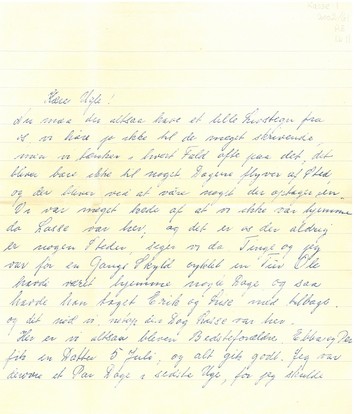 Kære Ugle!
Nu maa du altsaa have et lille Livstegn fra
os vi hører jo ikke til de meget skrivende,
men vi tænker i hvert Fald ofte paa det, det
bliver bare ikke til noget Dagene flyver af Sted
og der bliver ved at være noget der optager en.
Vi var meget kede af at vi ikke var hjemme
da Lasse var her, og det er os der aldrig
er nogen Steder, siger vi da Tenge og jeg
var for en Gangs Skyld cyklet en Tur Ole
havde været hjemme nogle Dage og saa
havde han taget Erik og Lise med tilbage.
og det nød vi, den Dag Lasse var her.
Her er vi altsaa bleven Bedsteforældre. Ebba og Per
fik en Datter 5 Juli, og alt gik godt. Jeg var
derovre et Par Dage i sidste Uge, for jeg skulde